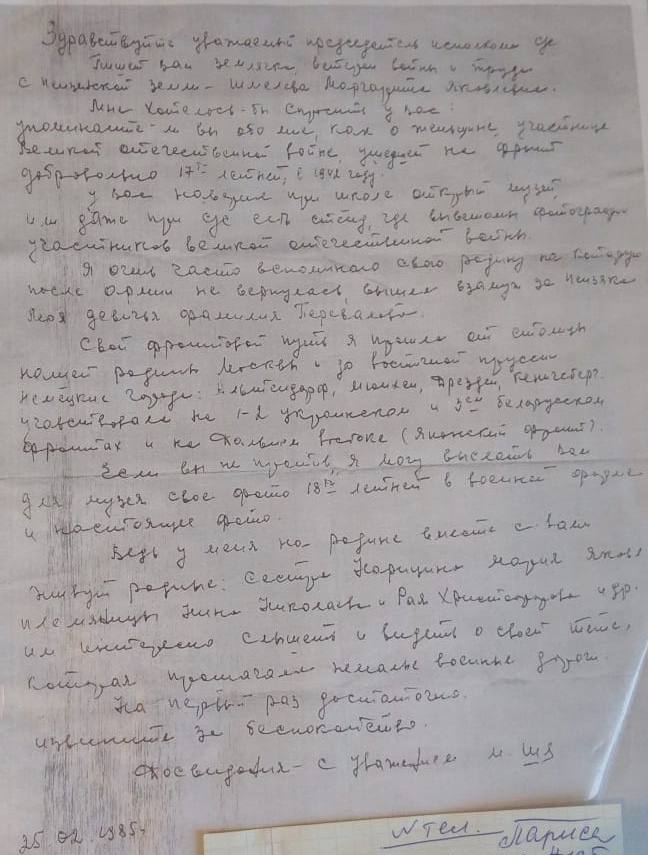 Здравствуйте уважаемый председатель исполкома с/с
Пишет вам землячка, ветеран войны и труда
с земли - Шмелева Маргарита Яковлевна.
Мне хотелось-бы спросить у вас:
упоминаете-ли вы обо мне, как о женщине, участнице
Великой отечественной войне, ушедшей на фронт
добровольно 17ти летней, в 1942 году.
у вас наверно при школе открыт музей,
или даже при с/с есть стенд, где вывешаны фотографии
участников великой отечественной войны.
Я очень часто вспоминаю свою родину на которую
после армии не вернулась, вышла взамуж за
Моя девичья фамилия Перевалова.
Свой фронтовой путь я прошла от столицы
нашей родины Москвы и до восточной пруссии
немецкие города: Мюнхен, Дрезден, Кенигсберг.
участвовала на 1-2 украинском и 3ем белорусском
фронтах и на Дальнем востоке (Японский фронт).
Если вы не против, я могу выслать вам
для музея свое фото 18ти летней в военной форме
и настоящее фото.
Ведь у меня на родине вместе с вами
живут родные: сестра Карицина Мария Яковл
племяницы Нина Николаевна и Рая и др.
им интересно слышеть и видеть о своей тете,
которая прошагала немалые военные дороги.
На первый раз достаточно.
извините за беспокойство.
Досвидания - с уважением М. Шм
25 02. 1985г
N тел. Лариса